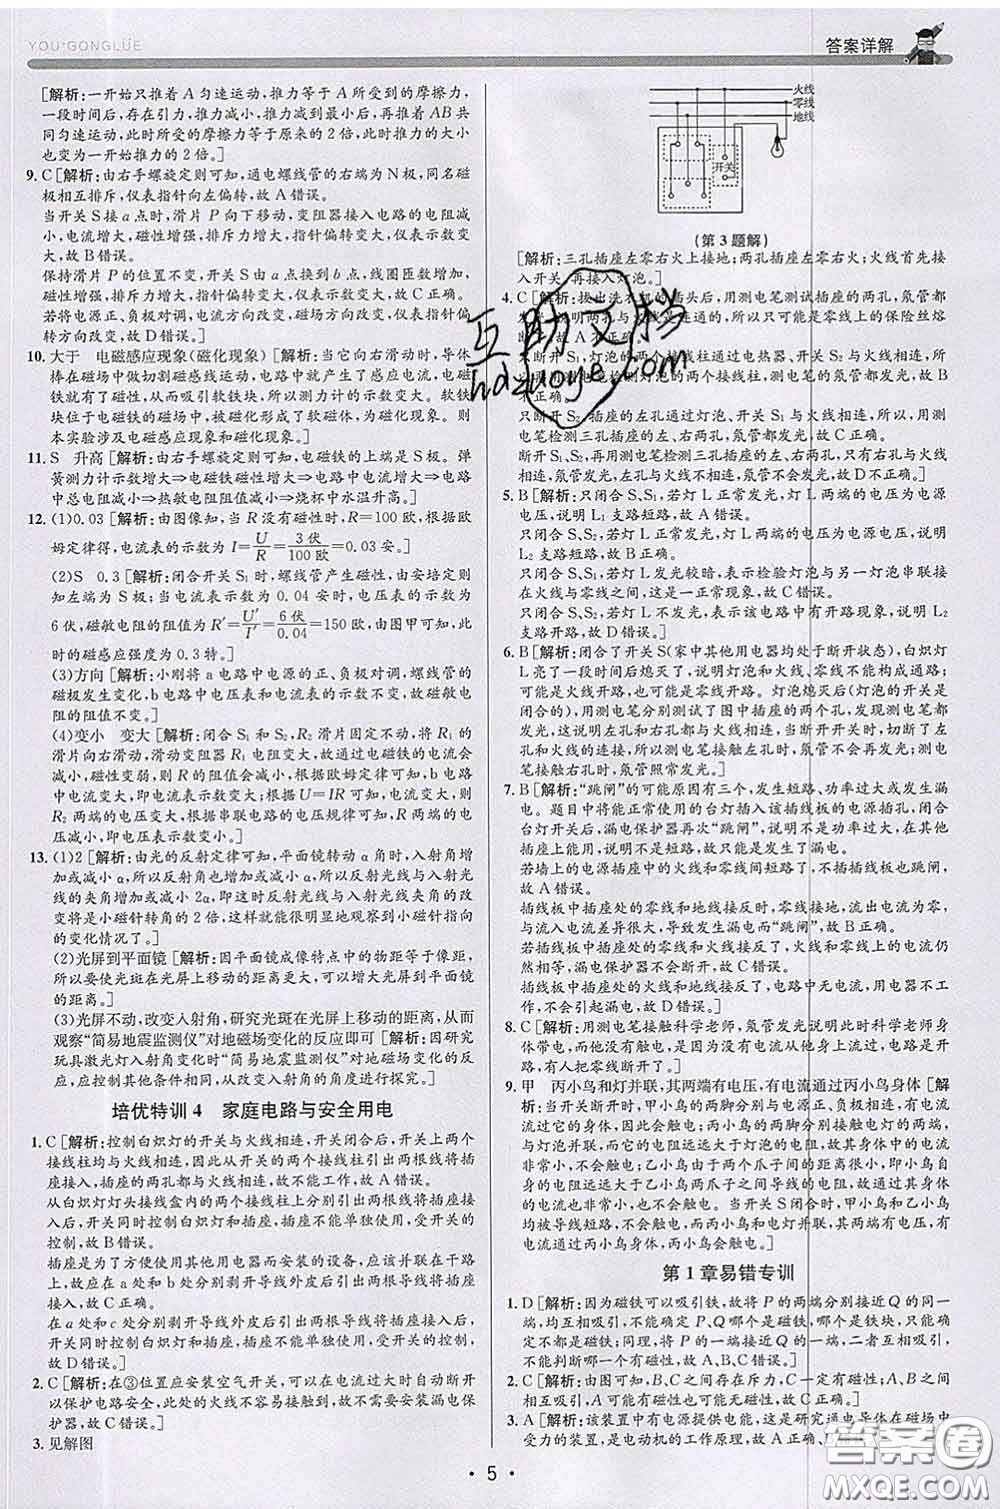 YOU·GONGLUE
答案详解
[解析:一开始只推着A匀速运动,推力等于A所受到的摩擦力,
一段时间后,存在引力,推力减小,推力减到最小后,再推着AB共
同匀速运动,此时所受的摩擦力等于原来的2倍,此时推力的大小
也变为一开始推力的2倍。]
9. C[解析:由右手螺旋定则可知,通电螺线管的右端为N极,同名磁
极相互排斥,仪表指针向左偏转,故A错误。
当开关S接a点时,滑片P向下移动,变阻器接入电路的电阻减
小,电流增大,磁性增强,排斥力变大,指针偏转变大,指针示数变
大,故B错误。
保持滑片P的位置不变,开关S由a点接到b点,线圈匝数增加,
磁性增强,指针偏转变大,指针示数变大,故C正确。
若将电源正、负极对调,电流方向改变,磁场方向改变,指针偏转
方向改变,故D错误。]
10. 大于 电磁感应现象(磁化现象)[解析:当它向右滑动时,导体
棒在磁场中做切割磁感线运动,电路中就产生了感应电流,螺线
管就有了磁性,从而吸引软铁块,所以测力计的示数变大。软铁
块位于电磁铁的磁场中,被磁化形成了软磁体,为磁化现象。则
本实验涉及电磁感应现象和磁化现象。]
11. S 升高[解析:由右手螺旋定则可知,电磁铁的上端是S极。弹
簧测力计示数增大⇒电磁铁磁性增大⇒电路中电流增大⇒电路
中总电阻减小⇒热敏电阻阻值减小⇒烧杯中水温升高。]
12. (1)0.03[解析:由图像知,当R没有磁性时,R=100欧,根据欧
姆定律得,电流表的示数为I=U/R=3伏/100欧=0.03安。]
(2)S 0.3[解析:闭合开关S₁时,螺线管产生磁性,由安培定则
知左端为S极;当电流表的示数为0.04安时,电压表的示数为
6伏,磁敏电阻的阻值为R′=U′/I′=6伏/0.04=150欧,由图甲可知,此
时的磁感应强度为0.3特。]
(3)方向[解析:小刚将a电路中电源的正、负极对调,螺线管的
磁极发生变化,b电路中电压表和电流表的示数不变,故磁敏电
阻的阻值不变。]
(4)变小 变大[解析:闭合S₁和S₂,R₂滑片固定不动,将R₁的
滑片向右滑动,滑动变阻器R₁电阻变大,故通过电磁铁的电流会
减小,磁性变弱,则R的阻值会减小,根据欧姆定律可知,b电路
中电流变大,即电流表示数变大;根据U=IR可知,电流变大,则
R₂两端的电压变大,根据串联电路的电压规律可知,R两端的电
压减小,即电压表示数变小。]
13. (1)2[解析:由光的反射定律可知,平面镜转动α角时,入射角增
加或减小α,而反射角也增加或减小α,所以反射光线与入射光
线的夹角增加或减小2α,即反射光线与入射光线的夹角的改
变将是小磁针转角的2倍,这样就能很明显地观察到小磁针指向
的变化情况了。]
(2)光屏到平面镜[解析:平面镜成像特点中的物距等于像距,
所以要使光斑在光屏上移动的距离更大,可以增大光屏到平面镜
的距离。]
(3)光屏不动,改变入射角,研究光斑在光屏上移动的距离,从而
观察“简易地震监测仪”对地磁场变化的反应即可[解析:研究
玩具激光灯入射角变化时“简易地震监测仪”对地磁场变化的反
应,需控制其他条件相同,从改变入射角的角度进行探究。]
培优特训4 家庭电路与安全用电
1. C[解析:控制白炽灯的开关与火线相连,开关闭合后,开关上两个
接线柱均与火线相连,因此从开关的两个接线柱引出两根线将插
座接入后,插座的两孔都与火线相连,故不能工作,故A错误。
从白炽灯灯头接线盒内的两个接线柱上分别引出两根线将插座
接入后,开关同时控制白炽灯和插座,插座不能单独使用,受开关的
控制,故B错误。
插座是为了方便使用其他用电器而安装的设备,应该并联在干路
上,因此,应该在a处和b处分别剥开导线外皮后引出两根导线将
插座接入,故C正确。
在a处和c处分别剥开导线外皮后引出两根导线将插座接入后,
开关同时控制白炽灯和插座,插座不能单独使用,受开关的控制,
故D错误。]
2. C[解析:在③位置应安装空气开关,可以在电流过大时自动断开
以保护电路安全,此处火线不容易直接与用户接触,可以减少触
电。故C正确。]
3. 见解图
火线
零线
地线
开关
(第3题解)
[解析:三孔插座左零右火上接地;两孔插座左零右火;火线首先接
入开关,再接入灯泡。]
4. C[解析:拔出洗衣机的插头后,用测电笔测试插座的两孔,氖管不
都发光,说明两孔与火线是连通的,所以不可能是零线的保险丝熔
断,故A不正确。
只断开S₁,灯泡的两个接线柱通过电热器、开关S₂与火线相连,所
以,用测电笔检测灯泡的两个接线柱,测电笔的氖管都发光,故B
不正确。
只断开S₂,插座的左孔通过灯泡、开关S₁与火线相连,所以,用测
电笔检测三孔插座的左、右两孔,氖管都发光,故C正确。
断开S₁、S₂,插座的右孔与火线相连,氖管发光;左孔没有与火线
相连,氖管不发光,左孔与火线不会发光,故D不正确。]
5. B[解析:只闭合S、S₁,若灯L正常发光,灯L两端的电压为电源
电压,说明L₁支路短路,故A错误。
只闭合S、S₂,若灯L正常发光,灯L两端的电压为电源电压,说明
L₂支路短路,故B正确。
只闭合S、S₁,若灯L发光较暗,表示检验灯L与另一灯泡串联接
在火线与零线之间,这是一种正常现象,故C错误。
只闭合S、S₂,若灯L不发光,表示该电路中有开路现象,说明L₂
支路开路,故D错误。]
6. B[解析:闭合了开关S(家中其他用电器均处于断开状态),白炽灯
L亮了一段时间后熄灭了,说明灯泡与火线、零线不能构成通路;
可能是火线开路,也可能是零线开路。灯泡熄灭后(灯泡的开关是
闭合的),用测电笔分别测试了图中插座的两个孔,发现测电笔都
发光,这说明左孔和右孔都与火线相通,当断开开关时,左孔就失
去了与火线的连接,所以测电笔插入左孔时,氖管不会再发光;测电
笔接触右孔时,氖管照常发光。]
7. B[解析:“跳闸”的可能原因有三个,发生短路、功率过大、发生漏
电。题目中将能正常使用的台灯插入该插线板的电源插孔,闭合
台灯开关后,漏电保护器再次“跳闸”,说明不是功率过大,在开关
闭合前没有“跳闸”说明不是短路,只能是发生了漏电。
若墙上的插座处的火线和零线接反了,不插插线板也会“跳闸”,
故A错误。
插线板中插座处的零线和地线接反时,零线接地,由于火线电流
与流入大地电流差异很大,导致“跳闸”,故B正确。
若插线板中插座处的零线和火线接反了,火线和零线的电流仍
然相等,漏电保护器不会“跳闸”,故C错误。
插线板中插座处的火线和地线接反时,没有零线,用电器不工作,
不会引起漏电,故D错误。]
8. C[解析:用测电笔接触科学老师,氖管发光说明此时科学老师身
体带电,而他没有触电,是因为没有电流从他身上流过,说明有开
路,只有人双脚与大地绝缘才会使电路开路。]
9. 甲 丙小鸟和灯并联,其两端有电压,有电流通过丙小鸟身体[解
析:由图知,当开关S断开时,甲小鸟的两只脚分别在火线和零线
上,并与灯泡串联,所以有电流通过小鸟的身体,但是电路中的电
流比它正常工作时的电流小得多,因为串联电路电流相等,且小鸟
与灯泡并联,而它的电阻远远大于灯泡的电阻,故其身体中的电流
非常小,不会触电;乙小鸟由于两个爪子间的导线的电阻非常
小,小鸟的电阻远远大于乙小鸟两爪子之间导线的电阻,所以它
的电流也非常小,也不会触电。当开关S闭合时,甲小鸟和乙小鸟
均被导线短路,不会触电,而丙小鸟和电灯并联,其两端有电压,有
电流通过丙小鸟身体,故丙小鸟会触电。]
第1章易错专训
1. D[解析:因为磁铁可以吸引铁,故将P的两端分别接近Q的同一
端,均互相吸引,不能确定P、Q哪个是磁铁,哪个是铁块,只能确
定不都是磁铁;同理,将P的一端接近Q的一端,二者互相吸引,
不能判断哪一个有磁性,故A、B、C错误。]
2. B[解析:因乙、丙之间存在斥力,乙、丙一定都有磁性,甲、乙之间
相互吸引,甲可能有磁性,可能无磁性,故B正确。]
3. A[解析:该装置中有电源提供电能,这是研究通电导体在磁场中
受力的装置,是电动机的工作原理,故A正确。]
· 5 ·
互助文档
hdzuoye.com
答案圈
MXQE.COM